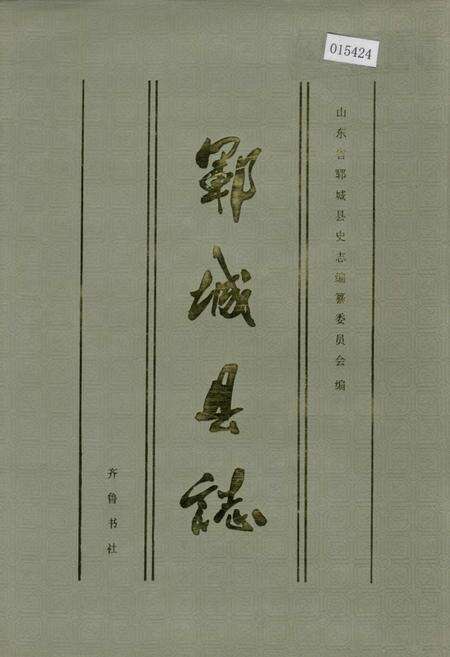 015424
山东省郓城县史志编纂委员会 编
郓城县誌
齐鲁书社